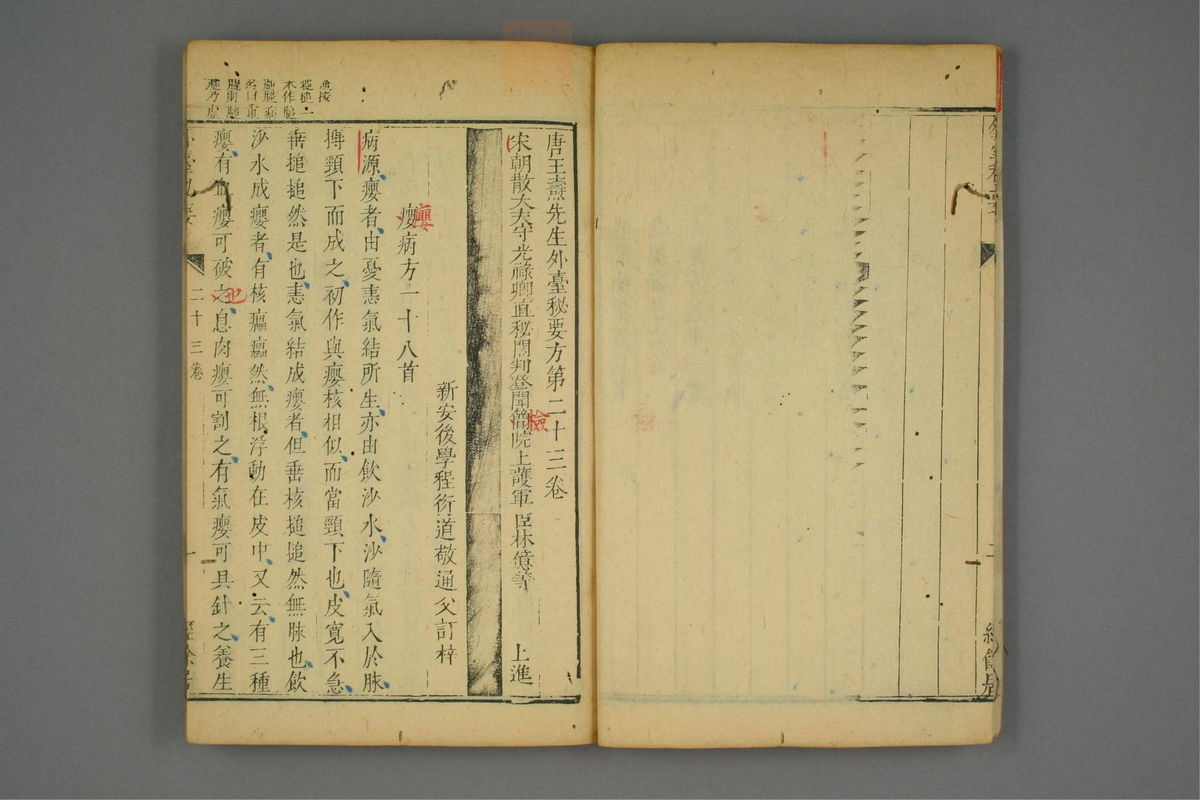 唐王燾先生外臺秘要方第二十三卷
宋朝散大夫守光祿卿直秘閣判登聞簡院上護軍臣林億等上進
檢
新安後學程衍道敬通父訂梓
癭病方一十八首
癭
病源癭者由憂恚氣結所生亦由飲沙水沙隨氣入於脉
搏頸下而成之初作與癭核相似而當頸下也皮寬不急
垂搥搥然是也恚氣結成癭者但垂核搥搥然無脉也飲
沙水成癭者有核㿔㿔然無根浮動在皮中又云有三種
癭有血癭可破之息肉癭可割之有氣癭可具針之養生
也
二十三卷